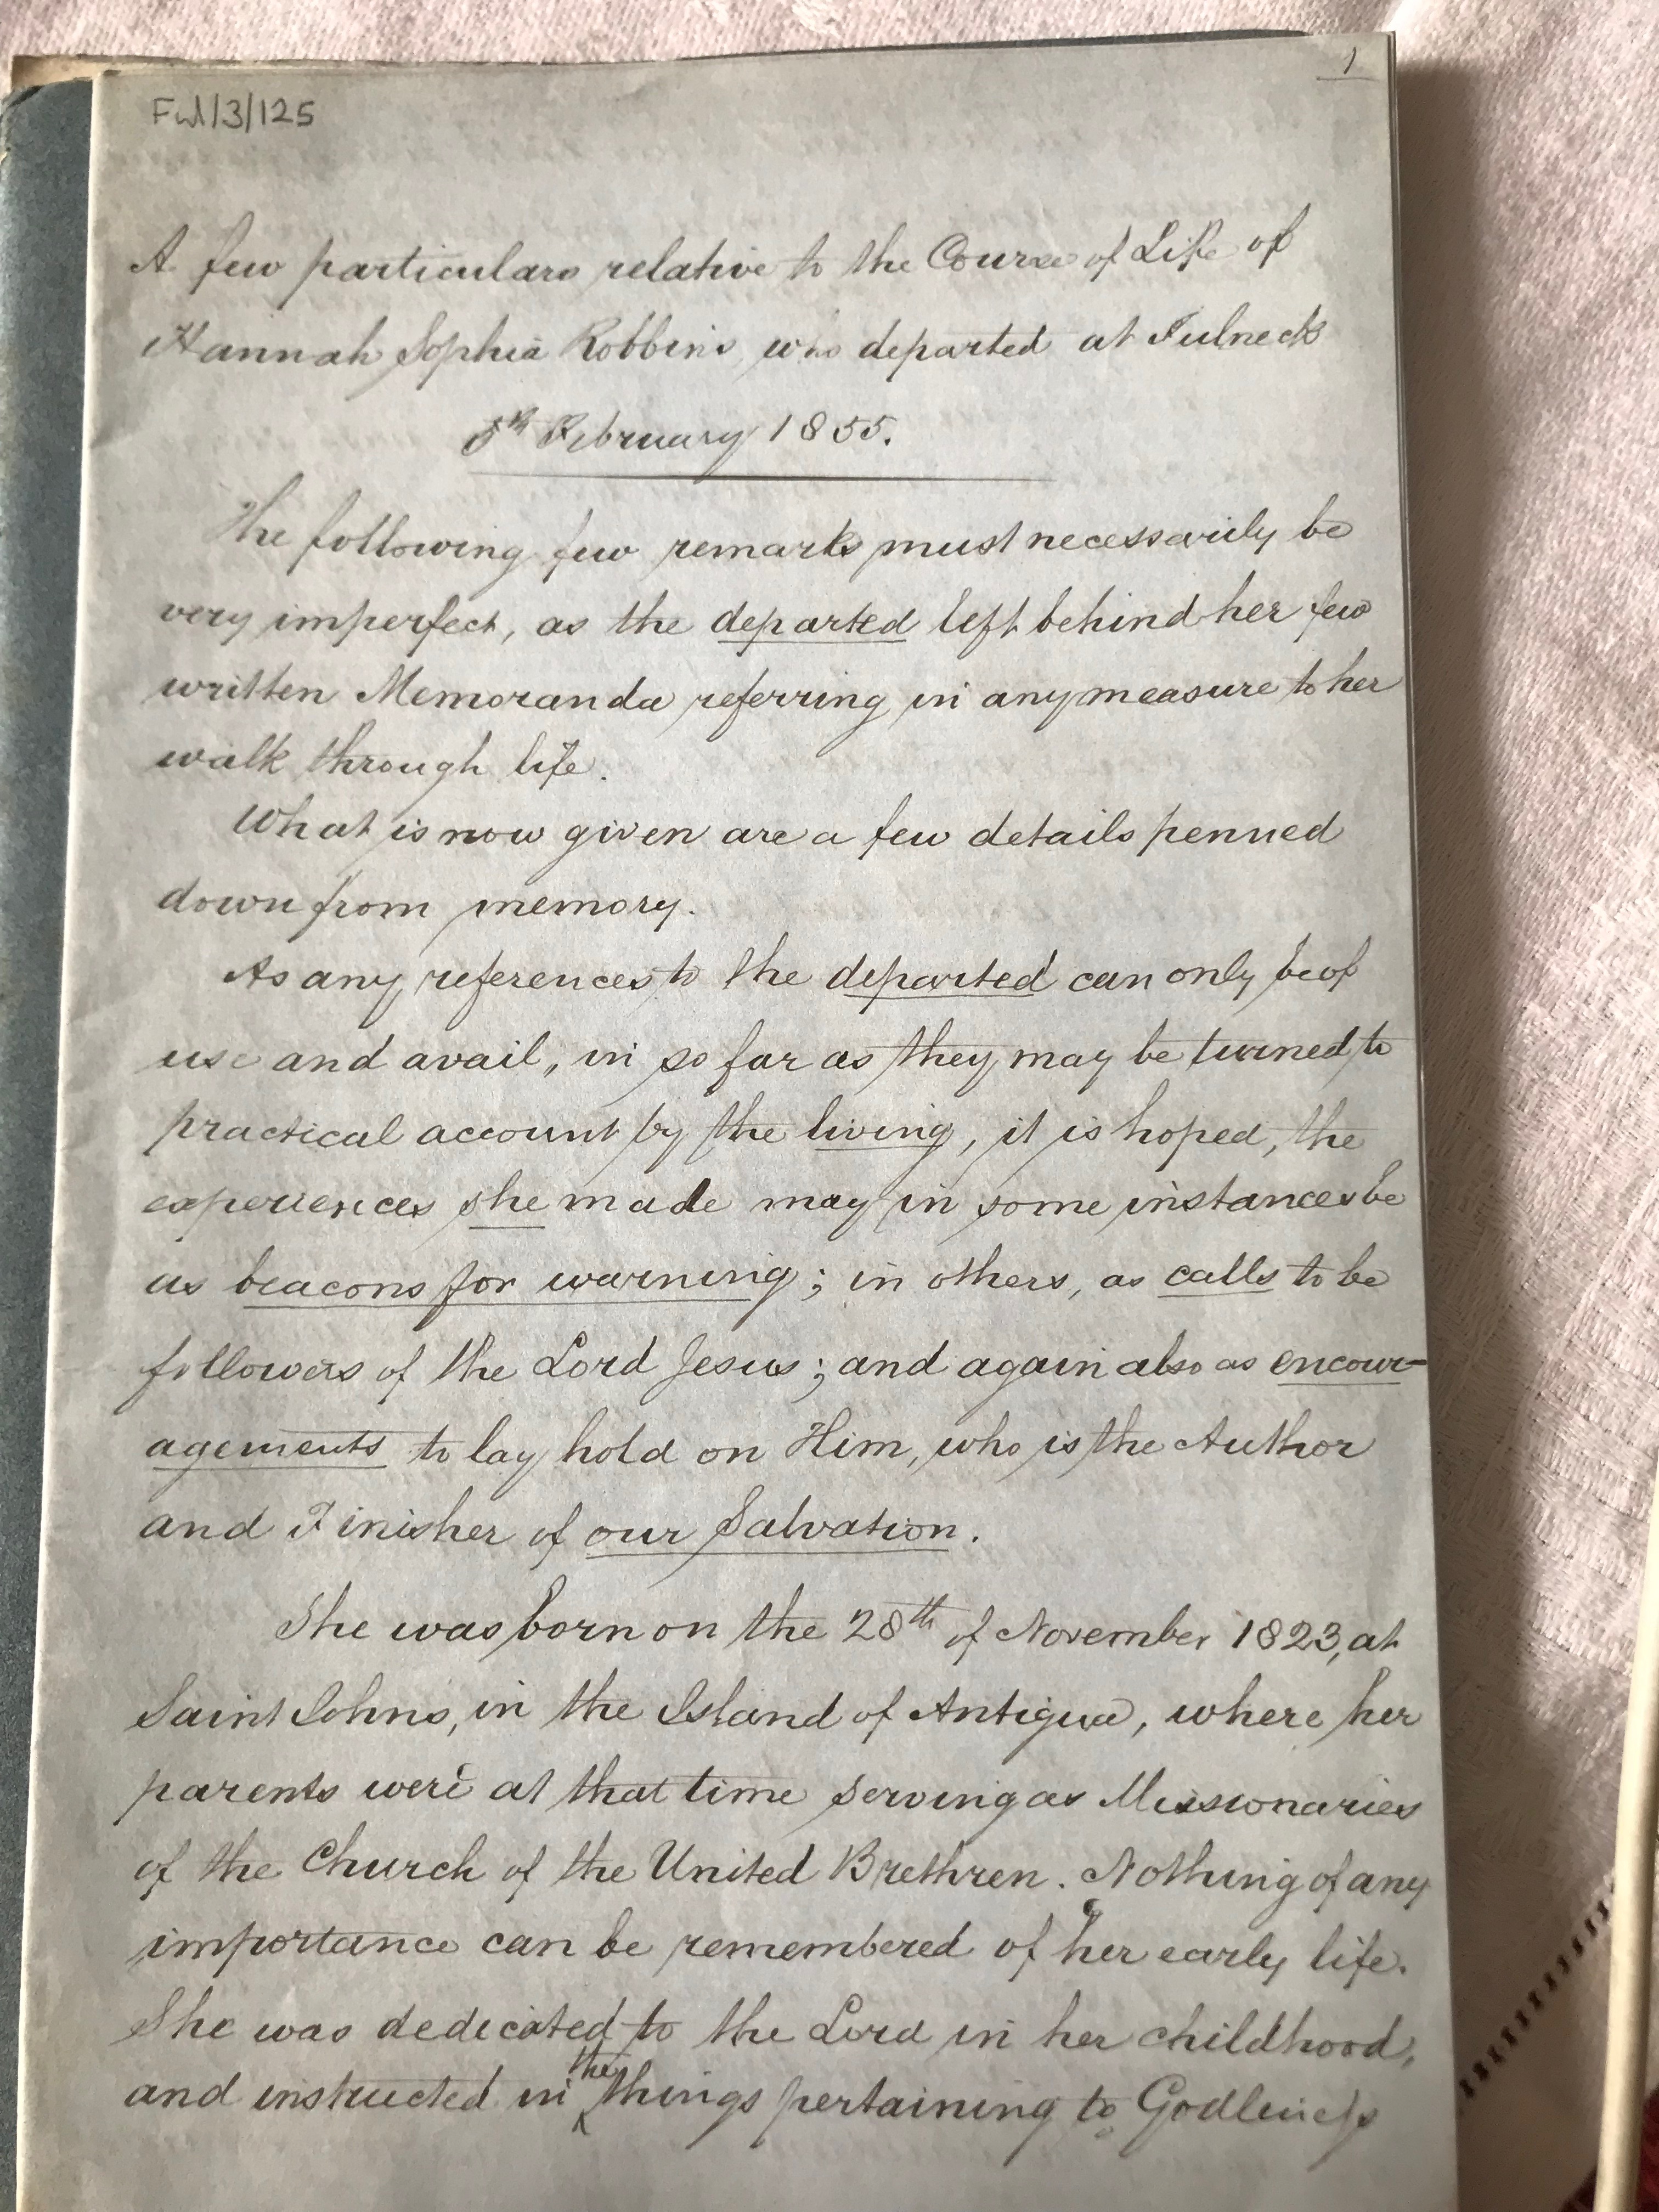 1
Ful/3/125
A few particulars relative to the Course of Life of
Hannah Sophia Robbins, who departed at Fulneck
5th February 1855.
The following few remarks must necessarily be
very imperfect, as the departed left behind her few
written Memoranda referring in any measure to her
walk through life.
What is now given are a few details penned
down from memory.
As any references to the departed can only be of
use and avail, in so far as they may be turned to
practical account by the living, it is hoped, the
experiences she made may in some instances be
as beacons for warning; in others, as calls to be
followers of the Lord Jesus; and again also as encour-
agements to lay hold on Him, who is the Author
and Finisher of our Salvation.
She was born on the 28th of November 1823, at
Saint Johns, in the Island of Antigua, where her
parents were at that time serving as Missionaries
of the Church of the United Brethren. Nothing of any
importance can be remembered of her early life.
She was dedicated to the Lord in her childhood,
and instructed in the things pertaining to Godliness